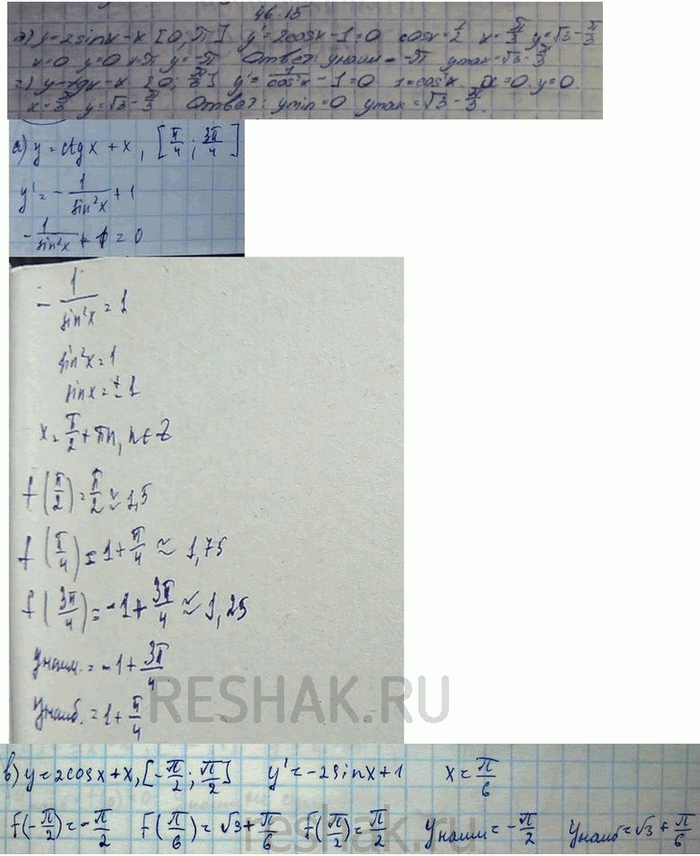 46.15
б) y=2sinx-x [0; π] y'=2cosx-1=0 cosx=1/2 x=π/3 y=√3-π/3
x=0 y=0 x=π y=-π Ответ: yнаим=-π yмах=√3-π/3
г) y=tgx-x [0; π/3] y'=1/cos²x-1=0 1=cos²x x=0 y=0
x=π/3 y=√3-π/3 Ответ: ymin=0 ymax=√3-π/3.
а) y=ctgx+x, [π/4; 3π/4]
y'=-1/sin²x+1
-1/sin²x+1=0
-1/sin²x=1
sin²x=1
sinx=±1
x=π/2+πn, n∈Z
f(π/2)=π/2≈1,5
f(π/4)=1+π/4≈1,75
f(3π/4)=-1+3π/4≈1,25
yнаим.=-1+3π/4
yнаиб.=1+π/4
RESHAK.RU
в) y=2cosx+x, [-π/2; π/2] y'=-2sinx+1 x=π/6
f(-π/2)=-π/2 f(π/6)=√3+π/6 f(π/2)=π/2 yнаим=-π/2 yнаиб=√3+π/6
reshak.ru